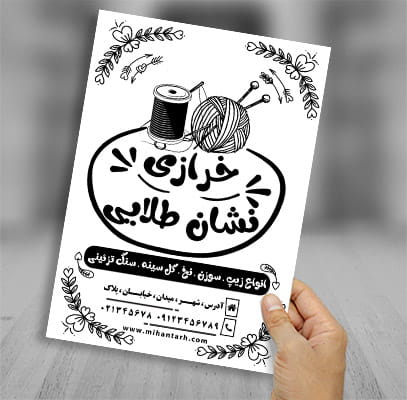 خرازی
نشان طلایی
انواع زیپ . سوزن . نخ . گل سینه . سنگ تزئینی
آدرس : شهر ، میدان ، خیابان ، پلاک
۰۲۱۳۴۵۶۷۸ ۰۹۱۲۳۴۵۶۷۸۹
www.mihantarh.com